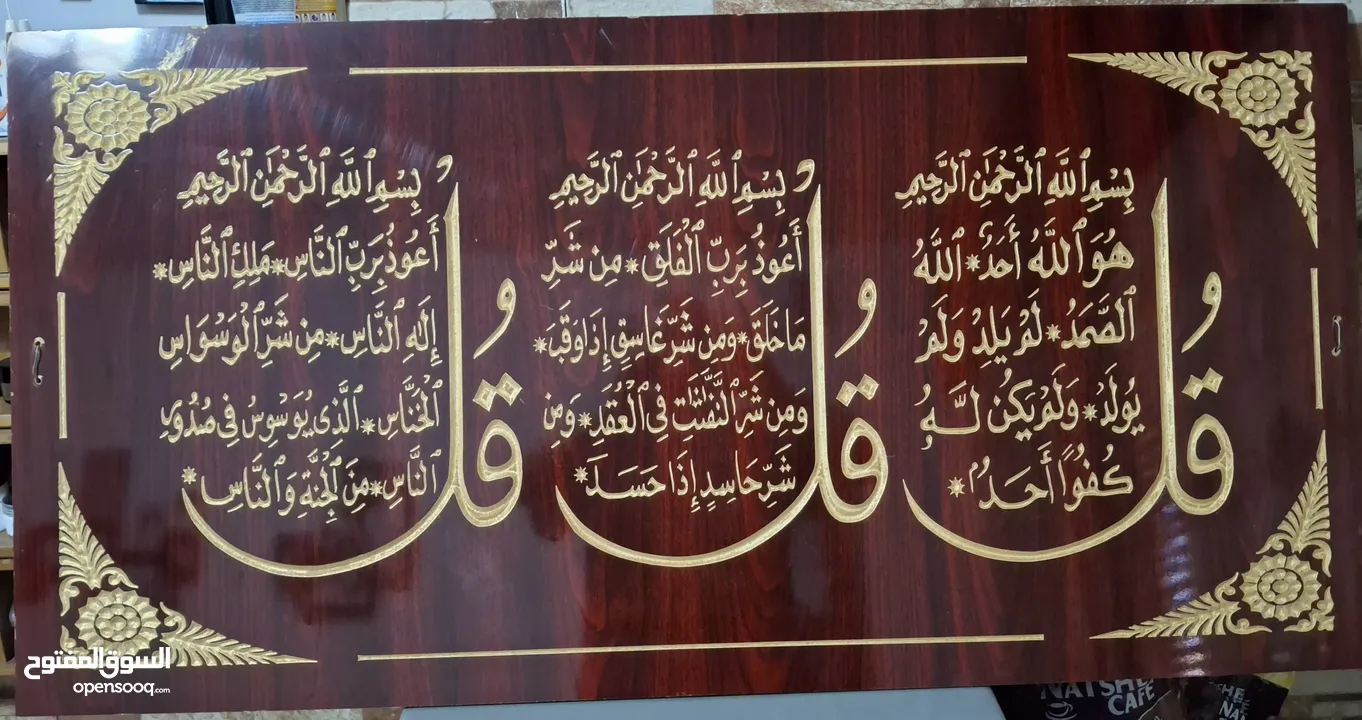 بِسْمِ ٱللَّهِ ٱلرَّحْمَٰنِ ٱلرَّحِيمِ
قُلْ
هُوَ ٱللَّهُ أَحَدٌ * ٱللَّهُ
ٱلصَّمَدُ * لَمْ يَلِدْ وَلَمْ
يُولَدْ * وَلَمْ يَكُن لَّهُۥ
كُفُوًا أَحَدٌ *
بِسْمِ ٱللَّهِ ٱلرَّحْمَٰنِ ٱلرَّحِيمِ
قُلْ
أَعُوذُ بِرَبِّ ٱلْفَلَقِ * مِن شَرِّ
مَا خَلَقَ * وَمِن شَرِّ غَاسِقٍ إِذَا وَقَبَ *
وَمِن شَرِّ ٱلنَّفَّٰثَٰتِ فِي ٱلْعُقَدِ * وَمِن
شَرِّ حَاسِدٍ إِذَا حَسَدَ *
بِسْمِ ٱللَّهِ ٱلرَّحْمَٰنِ ٱلرَّحِيمِ
قُلْ
أَعُوذُ بِرَبِّ ٱلنَّاسِ * مَلِكِ ٱلنَّاسِ *
إِلَٰهِ ٱلنَّاسِ * مِن شَرِّ ٱلْوَسْوَاسِ
ٱلْخَنَّاسِ * ٱلَّذِي يُوَسْوِسُ فِي صُدُورِ
ٱلنَّاسِ * مِنَ ٱلْجِنَّةِ وَٱلنَّاسِ *
السوق المفتوح
opensooq.com
NATSHE
CAFE